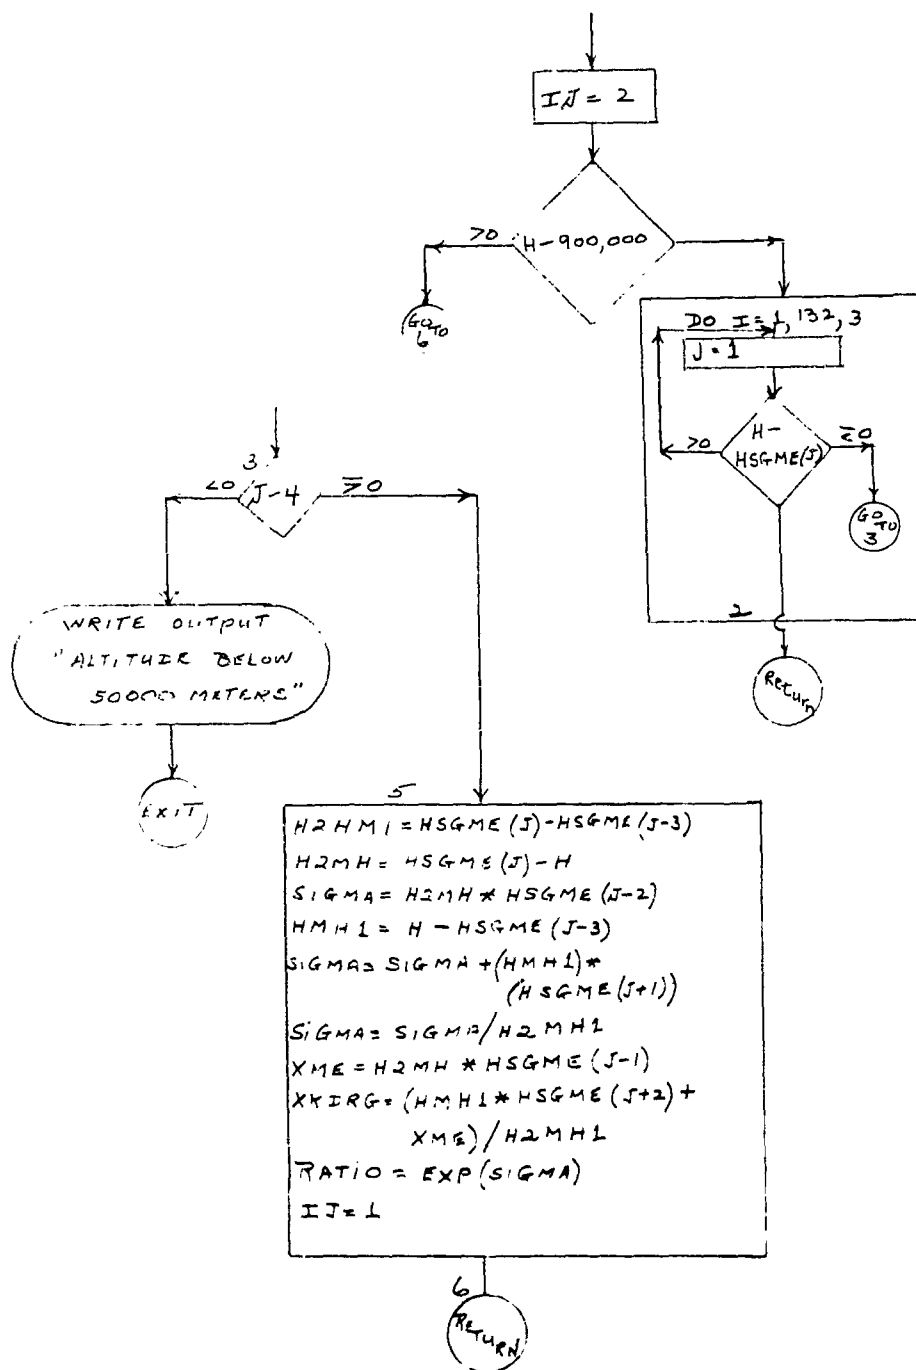 IJ = 2
>0
H-900,000
GO TO
6
DO I=1, 132, 3
J=1
>0
H-
HSGME(J)
≤0
GO TO
3
2
Return
3
<0
J-4
≥0
WRITE OUTPUT
"ALTITUDE BELOW
50000 METERS"
EXIT
5
H2HM1 = HSGME(J)-HSGME(J-3)
H2MH = HSGME(J)-H
SIGMA = H2MH * HSGME(J-2)
HMH1 = H - HSGME(J-3)
SIGMA = SIGMA + (HMH1) *
(HSGME(J+1))
SIGMA = SIGMA/H2MH1
XME = H2MH * HSGME(J-1)
XKIRG = (HMH1 * HSGME(J+2) +
XME)/H2MH1
RATIO = EXP(SIGMA)
IJ = 1
6
RETURN